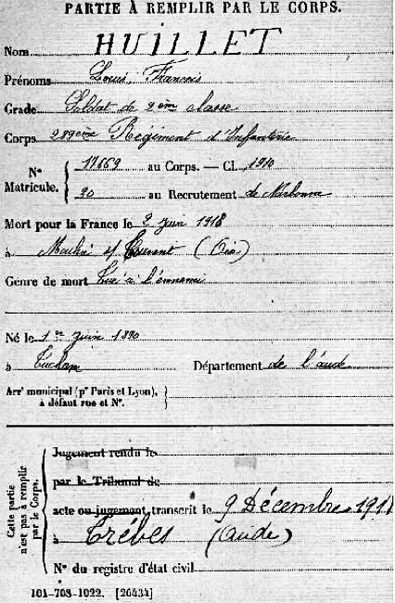 PARTIE À REMPLIR PAR LE CORPS.
Nom HUILLET
Prénoms Louis, François
Grade Soldat de 2ème classe
Corps 289ème Régiment d'Infanterie
N° Matricule. 17669 au Corps. — Cl. 1910
90 au Recrutement de Narbonne
Mort pour la France le 2 Juin 1918
à Moulin s/ (Oise)
Genre de mort Tué à l'ennemi
Né le 1er Juin 1890
à Tuchan Département de l'Aude
Arrt municipal (pr Paris et Lyon),
à défaut rue et N°.
Cette partie n'est pas à remplir par le Corps.
Jugement rendu le
par le Tribunal de
acte ou jugement transcrit le 9 Décembre 1918
à Trèbes (Aude)
N° du registre d'état civil
101-708-1022. [26434]